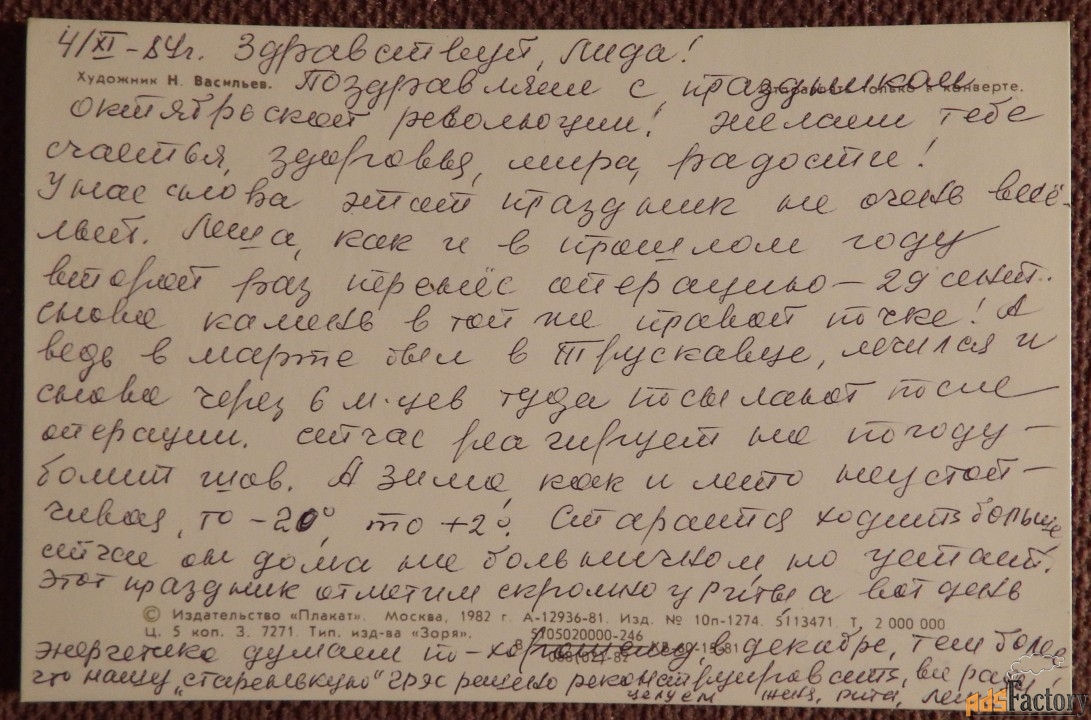 4/XI-84г. Здравствуй, Лида!
Художник Н. Васильев. Поздравляем с праздником
Отправлять только в конверте.
октябрьской революции! Желаем тебе
счастья, здоровья, мира, радости!
У нас снова этот праздник не очень весё-
лый. Леша, как и в прошлом году
второй раз перенёс операцию – 29 сент.
снова камень в той же правой почке! А
ведь в марте был в Трускавце, лечился и
снова через 6 м-цев туда посылают после
операции. сейчас реагирует на погоду –
болит шов. А зима, как и лето неустой-
чивая, то -20°, то +2°. Старается ходить больше
сейчас он дома на больничном, но устает.
Этот праздник отметим скромно у Риты, а вот день
© Издательство «Плакат». Москва, 1982 г. А-12936-81. Изд. № 10п-1274. 5113471. Т. 2 000 000
Ц. 5 коп. З. 7271. Тип. изд-ва «Зоря». 5105020000-246
энергетика думаем в декабре, тем более
что нашу „старенькую" грэс решено реконструировать,
целуем Рита,
AdsFactory